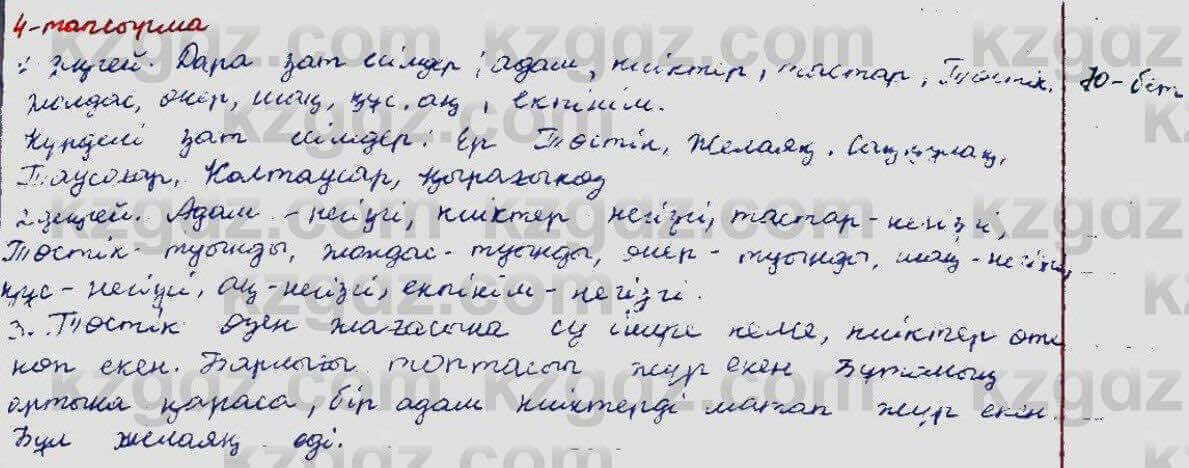 4-тапсырма
1 деңгей. Дара зат есімдер: адам, киіктер, тастар, Төстік. 70-бет
жолдас, өнер, шаң, құс, аң, екпінім.
Күрделі зат есімдер: Ер Төстік, Желаяқ, Саққұлақ,
Таусоғар, Көлтаусар, қырағыкөз
2 деңгей. Адам - негізгі, киіктер негізгі, тастар - негізгі,
Төстік - туынды, жолдас - туынды, өнер - туынды, шаң - негізгі,
құс - негізгі, аң - негізгі, екпінім - негізгі.
3. Төстік өзен жағасына су ішуге келсе, киіктер өте
көп екен. Барлығы топтасып жүр екен
артына қараса, бір адам киіктерді матап жүр екен.
Бұл желаяқ еді.